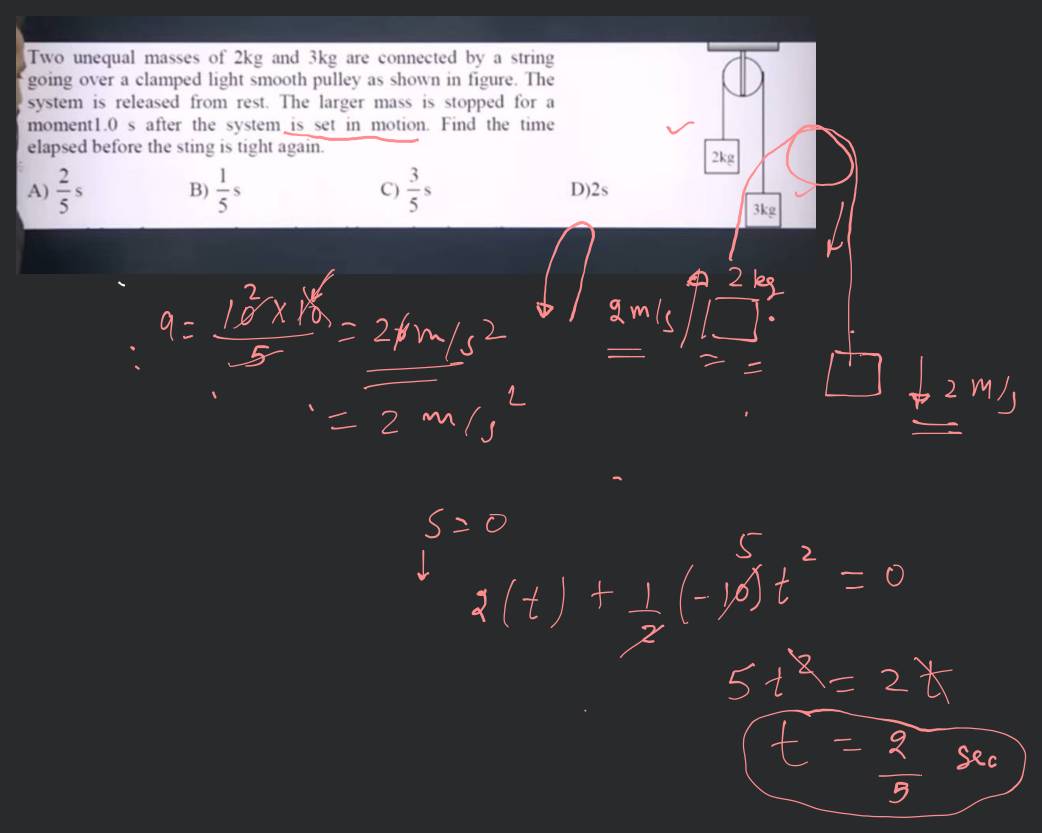 Two unequal masses of 2kg and 3kg are connected by a string
going over a clamped light smooth pulley as shown in figure. The
system is released from rest. The larger mass is stopped for a
moment1.0 s after the system is set in motion. Find the time
elapsed before the sting is tight again.
A) 2/5 s B) 1/5 s C) 3/5 s D)2s
2kg
3kg
2 kg
2 m/s
2 m/s
= 2 m/s²
S = 0
2(t) + 1/2 (-10)t² = 0
5
5t² = 2t
t = 2/5 sec